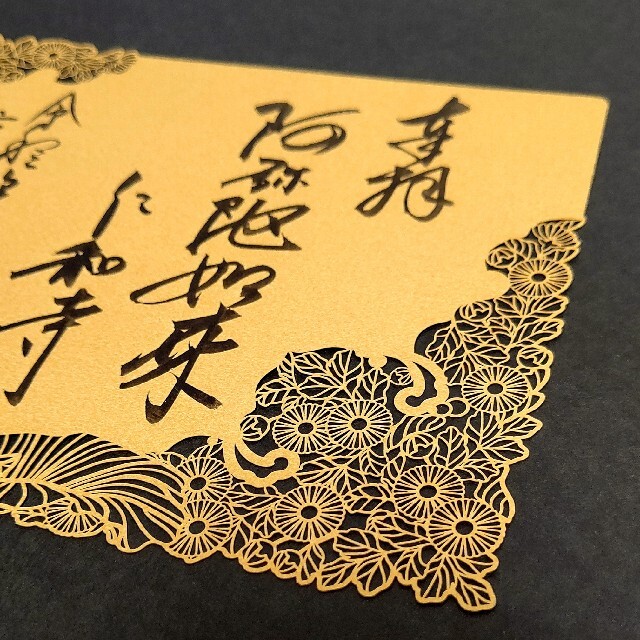 奉拝
阿弥陀如来
仁和寺